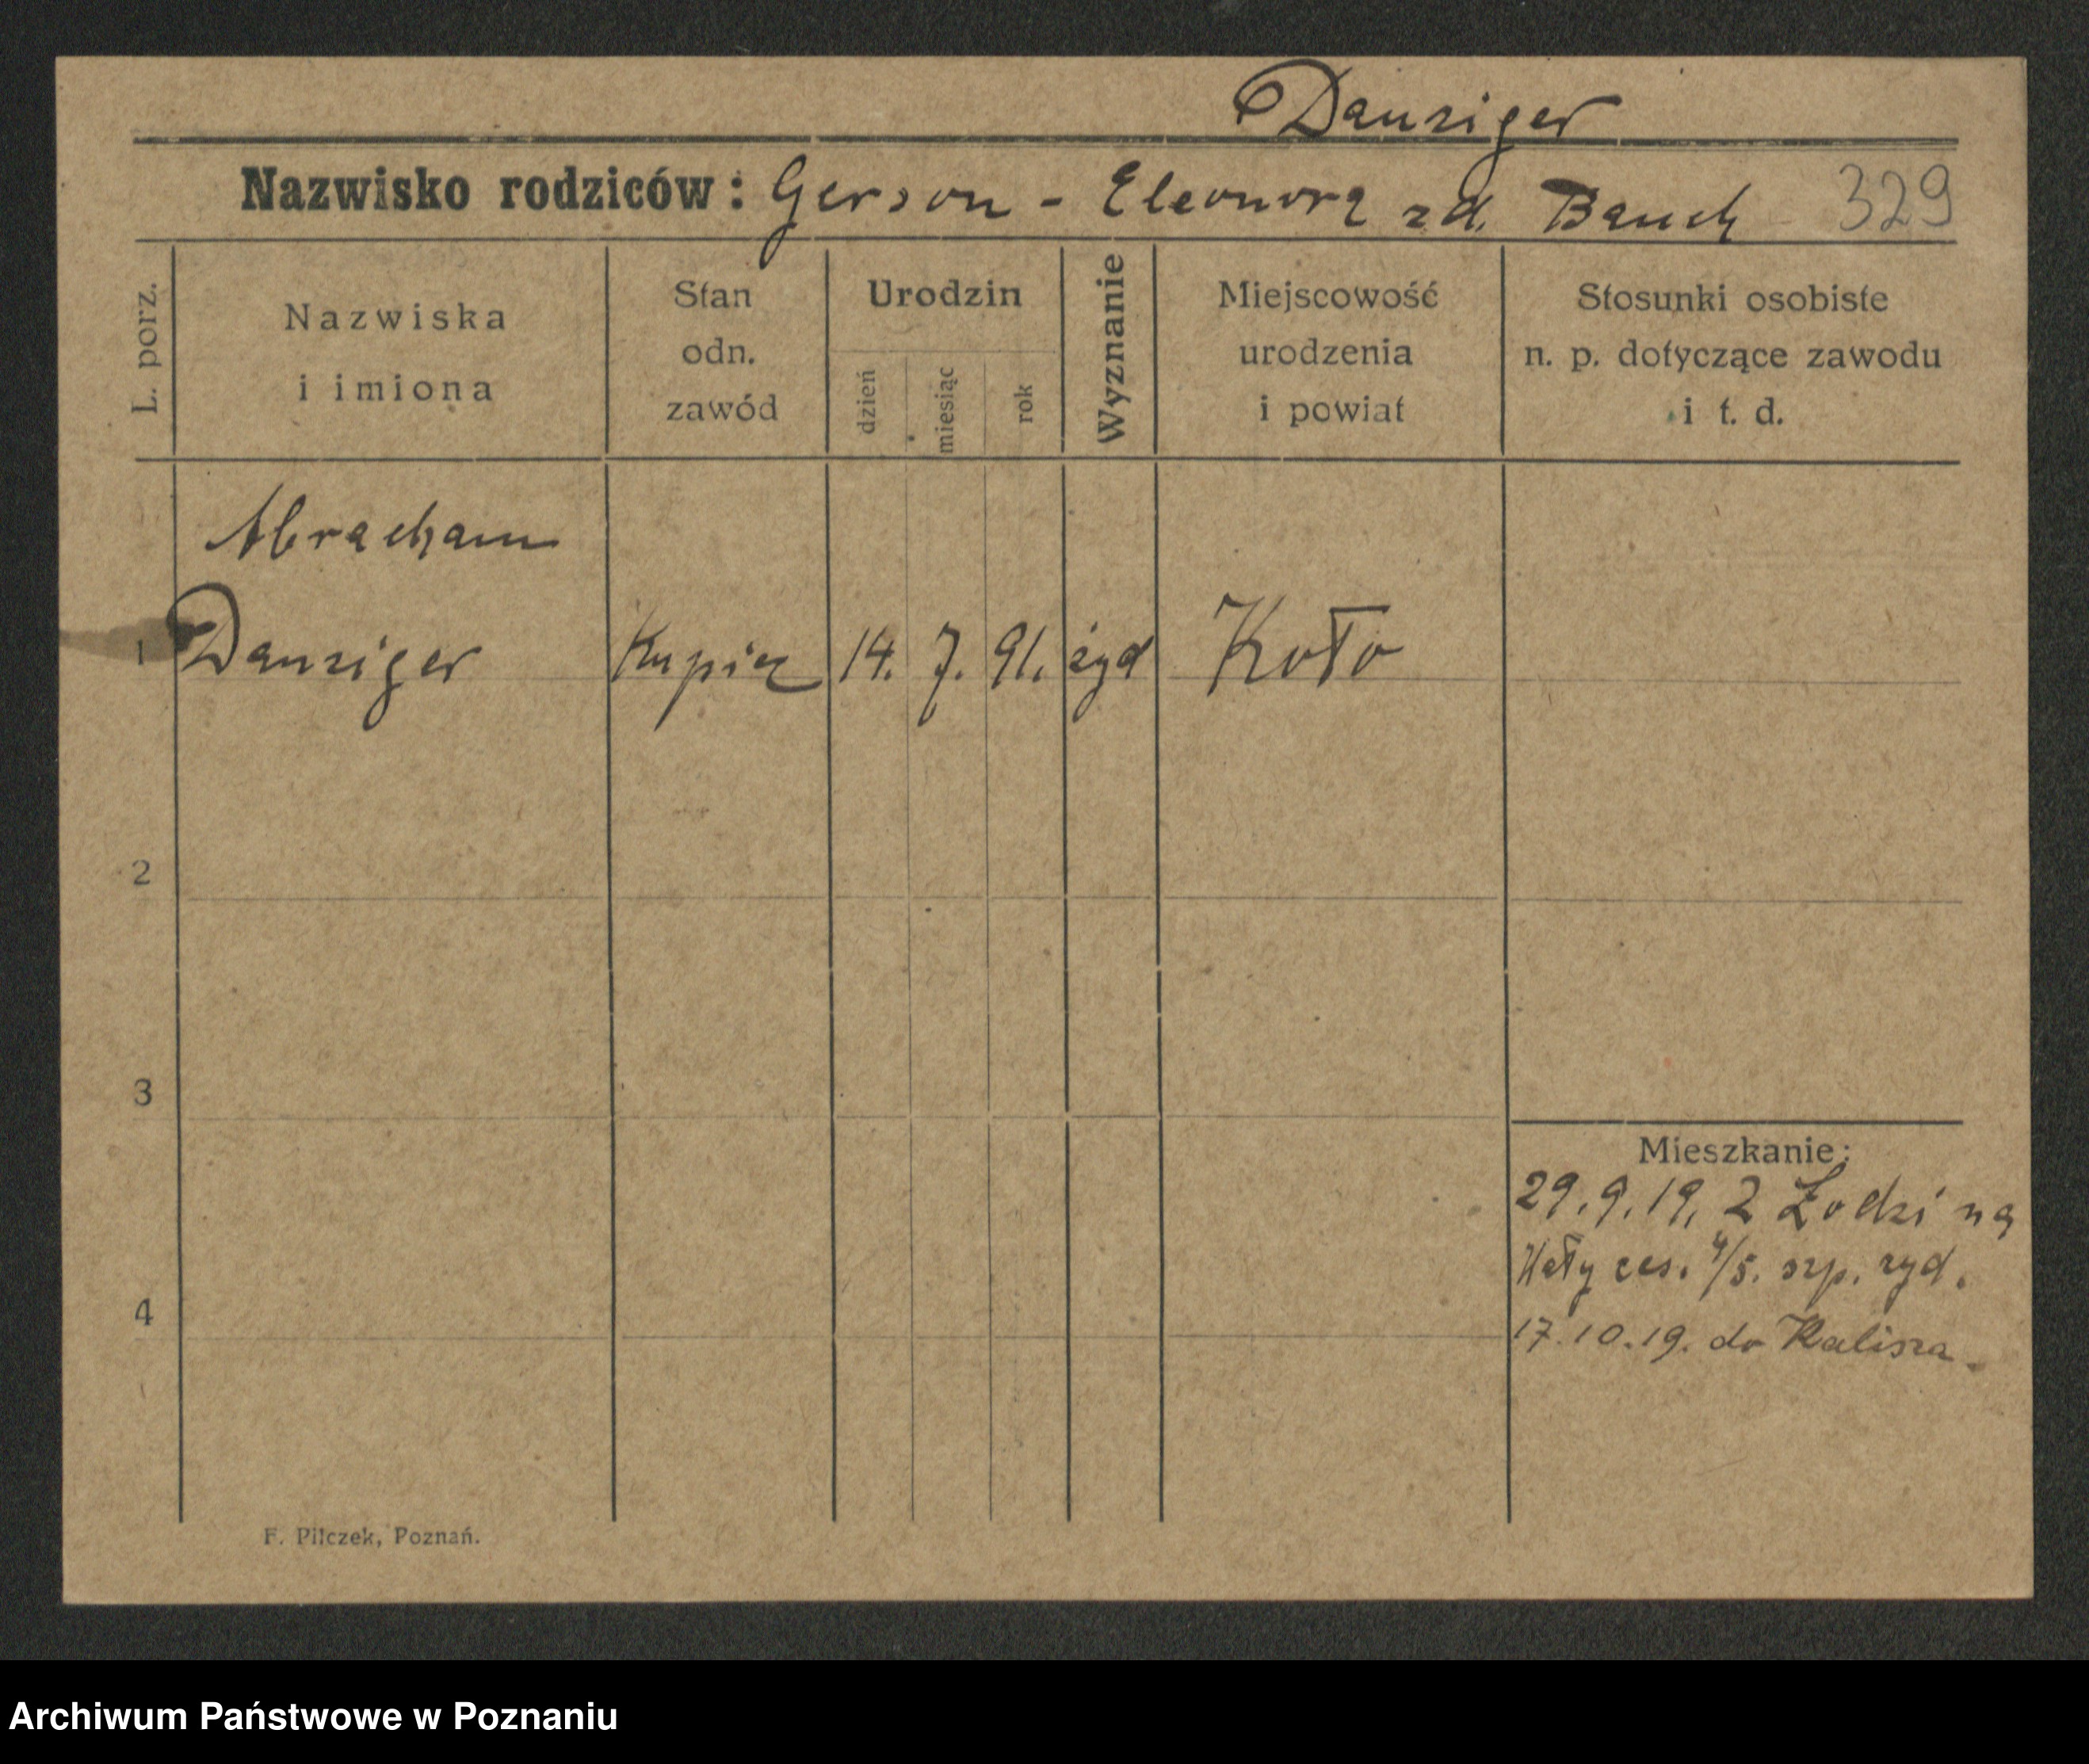 Danziger
Nazwisko rodziców: Gerson - Eleonora zd. Bauch 329
L. porz.
Nazwiska
i imiona
Stan
odn.
zawód
Urodzin
dzień
miesiąc
rok
Wyznanie
Miejscowość
urodzenia
i powiat
Stosunki osobiste
n. p. dotyczące zawodu
i t. d.
Abracham
1 Danziger Kupiec 14. 7. 91. żyd Koło
2
3
4
Mieszkanie:
29.9.19. Z Łodzi na
Wały 4/5. szp. zyd.
17.10.19. do Kalisza.
F. Pilczek, Poznań.
Archiwum Państwowe w Poznaniu